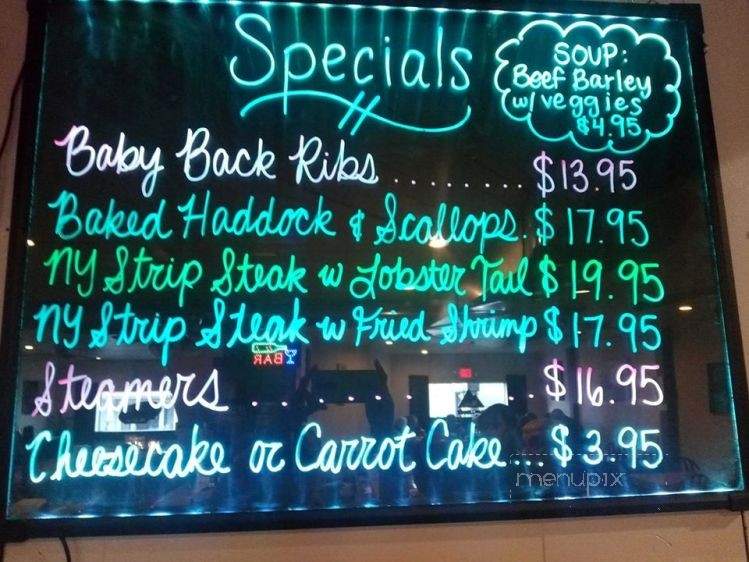 Specials
SOUP:
Beef Barley
w/ veggies
$4.95
Baby Back Ribs ......... $13.95
Baked Haddock & Scallops. $17.95
NY Strip Steak w Lobster Tail $19.95
NY Strip Steak w Fried Shrimp $17.95
BAR
Steamers ........ $16.95
Cheesecake or Carrot Cake... $3.95
menupix